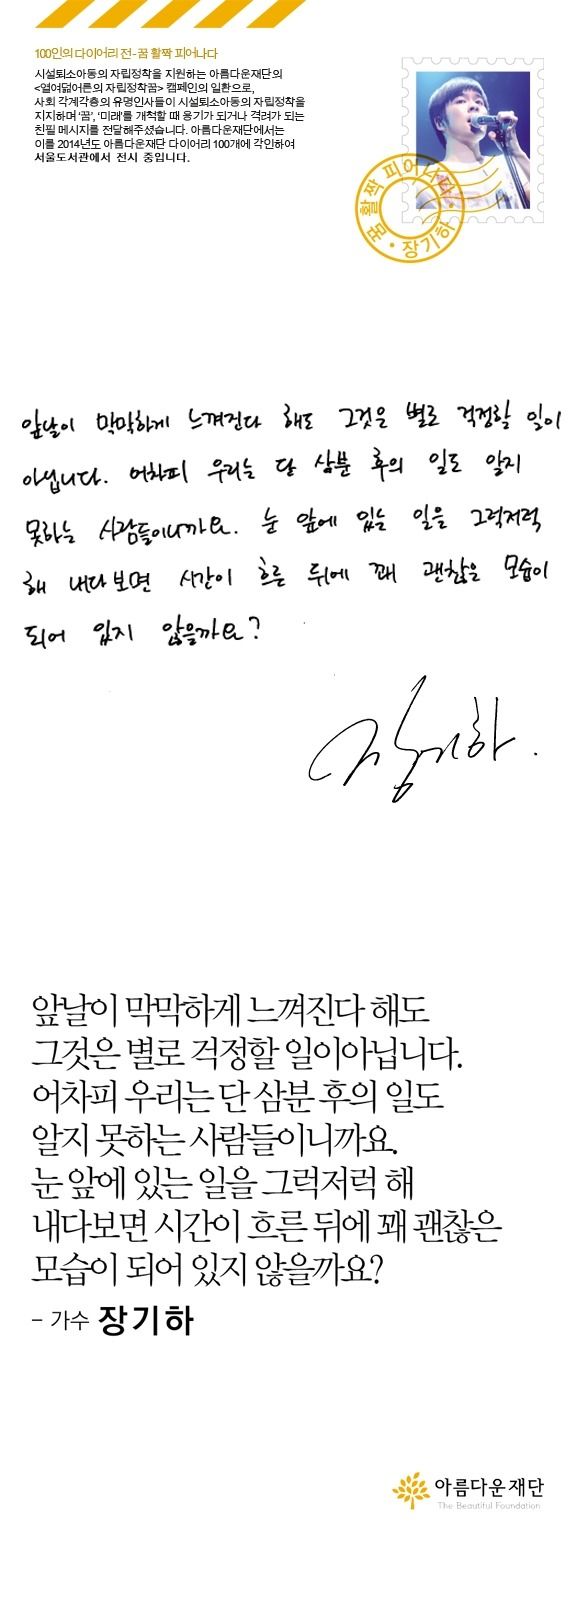 100인의 다이어리 전 - 꿈 활짝 피어나다
시설퇴소아동의 자립정착을 지원하는 아름다운재단의
<열여덟어른의 자립정착꿈> 캠페인의 일환으로,
사회 각계각층의 유명인사들이 시설퇴소아동의 자립정착을
지지하며 '꿈', '미래'를 개척할 때 용기가 되거나 격려가 되는
친필 메시지를 전달해주셨습니다. 아름다운재단에서는
이를 2014년도 아름다운재단 다이어리 100개에 각인하여
서울도서관에서 전시 중입니다.
꿈 활짝 피어나다 · 장기하
앞날이 막막하게 느껴진다 해도 그것은 별로 걱정할 일이
아닙니다. 어차피 우리는 단 삼분 후의 일도 알지
못하는 사람들이니까요. 눈 앞에 있는 일을 그럭저럭
해 내다보면 시간이 흐른 뒤에 꽤 괜찮은 모습이
되어 있지 않을까요?
장기하.
앞날이 막막하게 느껴진다 해도
그것은 별로 걱정할 일이아닙니다.
어차피 우리는 단 삼분 후의 일도
알지 못하는 사람들이니까요.
눈 앞에 있는 일을 그럭저럭 해
내다보면 시간이 흐른 뒤에 꽤 괜찮은
모습이 되어 있지 않을까요?
- 가수 장기하
아름다운재단
The Beautiful Foundation